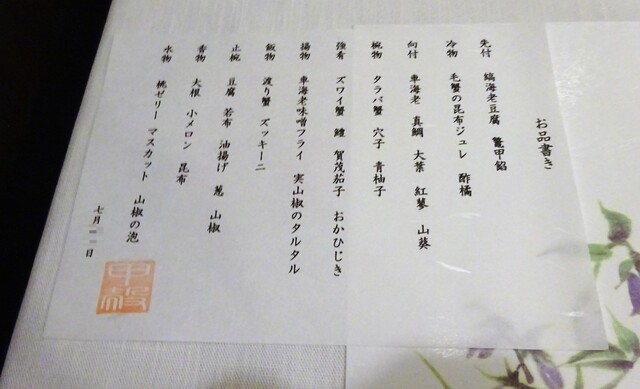 お品書き
先付 縞海老豆腐 鼈甲餡
冷物 毛蟹の昆布ジュレ 酢橘
向付 車海老 真鯛 大葉 紅蓼 山葵
椀物 タラバ蟹 穴子 青柚子
強肴 ズワイ蟹 鱧 賀茂茄子 おかひじき
揚物 車海老味噌フライ 実山椒のタルタル
飯物 渡り蟹 ズッキーニ
止椀 豆腐 若布 油揚げ 葱 山椒
香物 大根 小メロン 昆布
水物 桃ゼリー マスカット 山椒の泡
七月 日